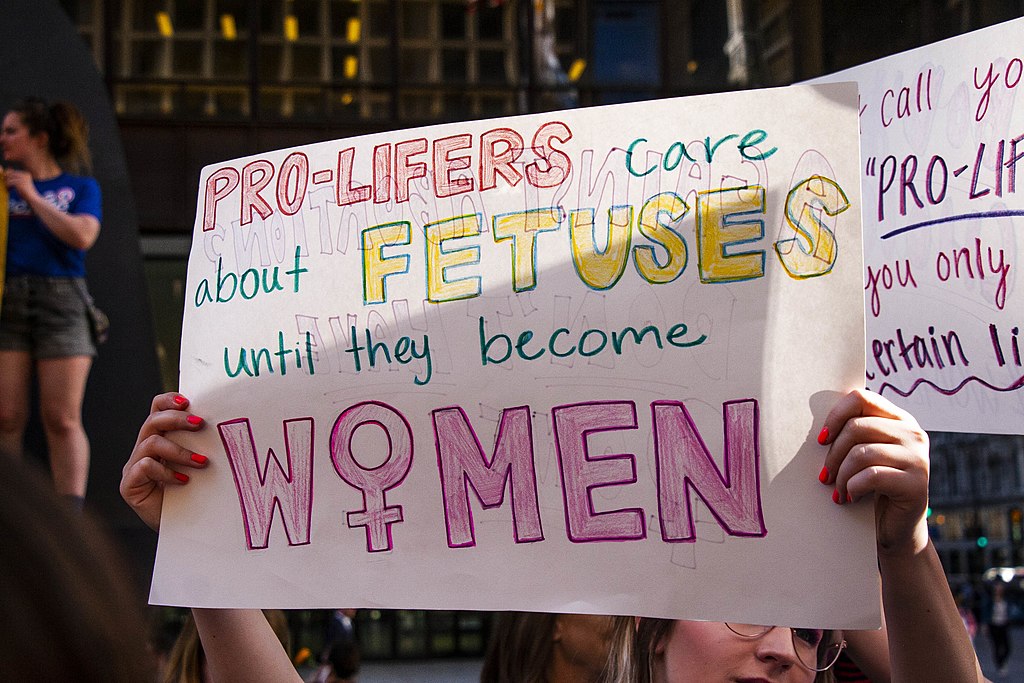 PRO-LIFERS care
about FETUSES
until they become
WOMEN
call
"PRO-
you only